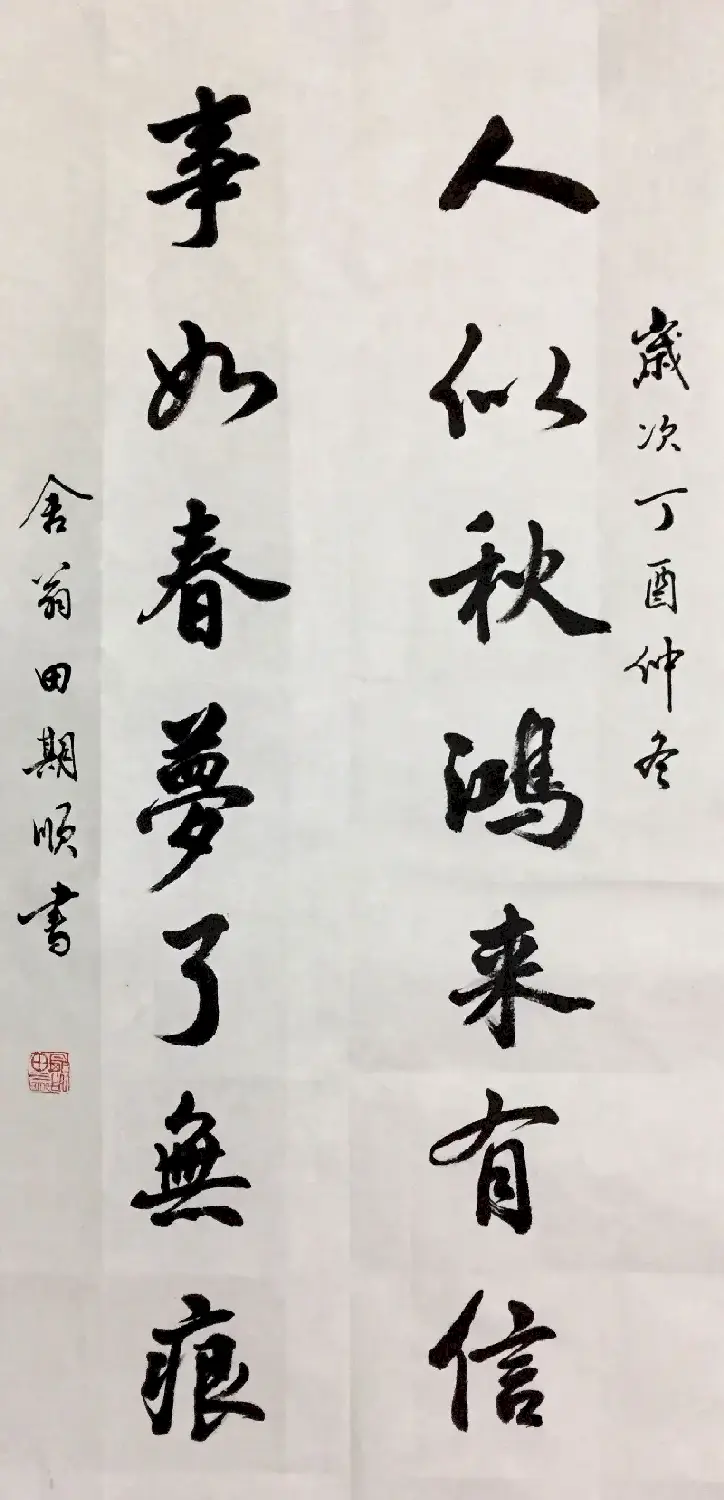 歲次丁酉仲冬
人似秋鴻来有信
事如春夢了無痕
舍翁田期順书